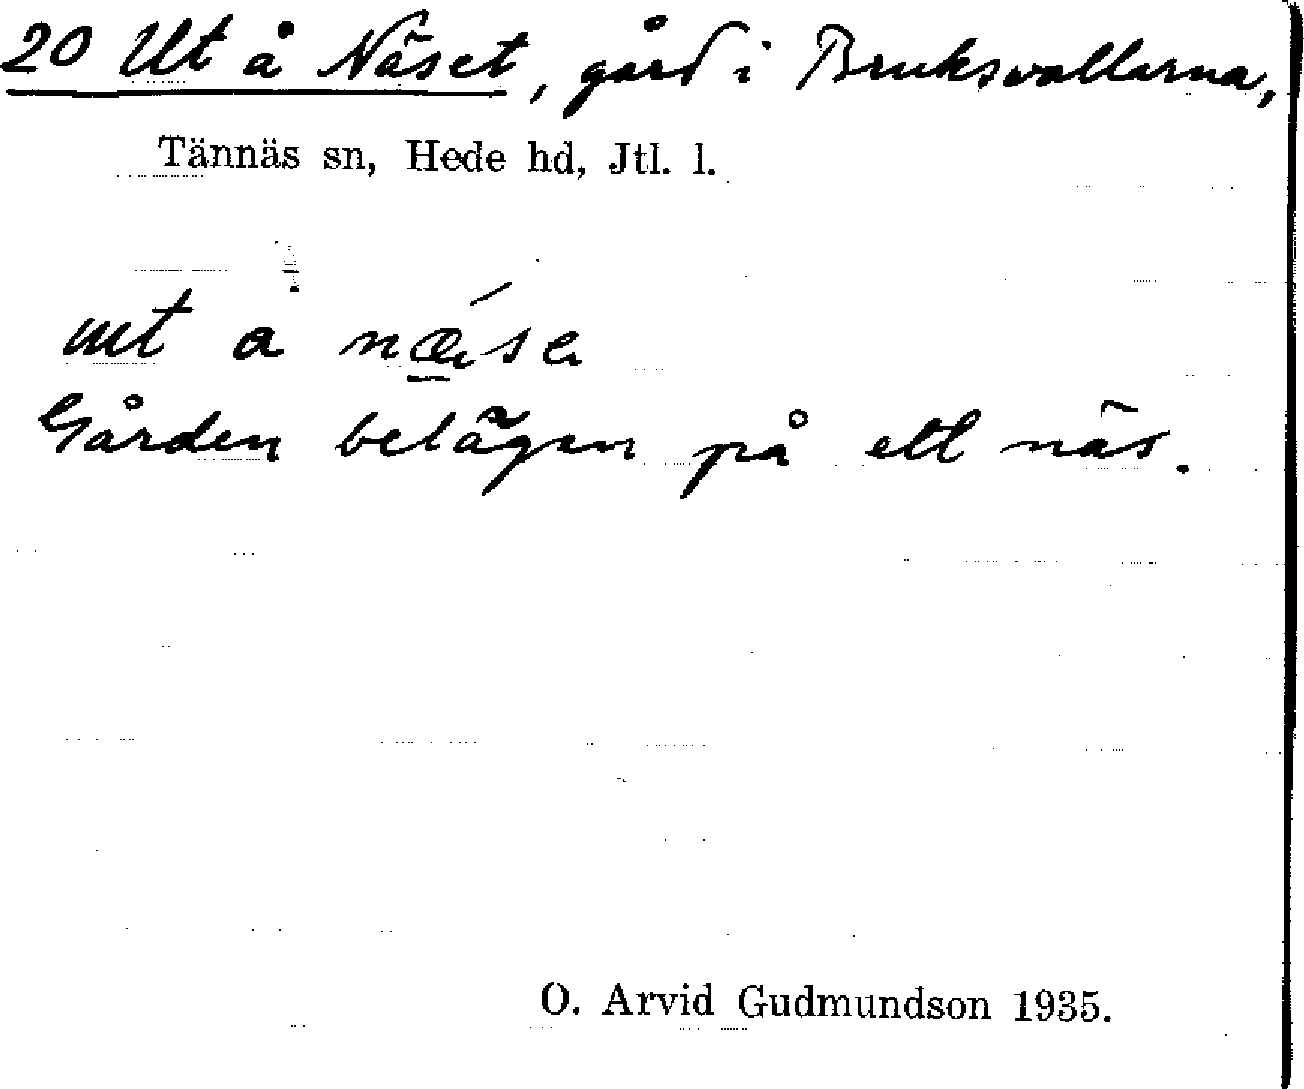 20 Ut å Näset, gård i Bruksvallarna,
Tännäs sn, Hede hd, Jtl. l.
ut a næ´se
Gården belägen på ett näs.
O. Arvid Gudmundson 1935.